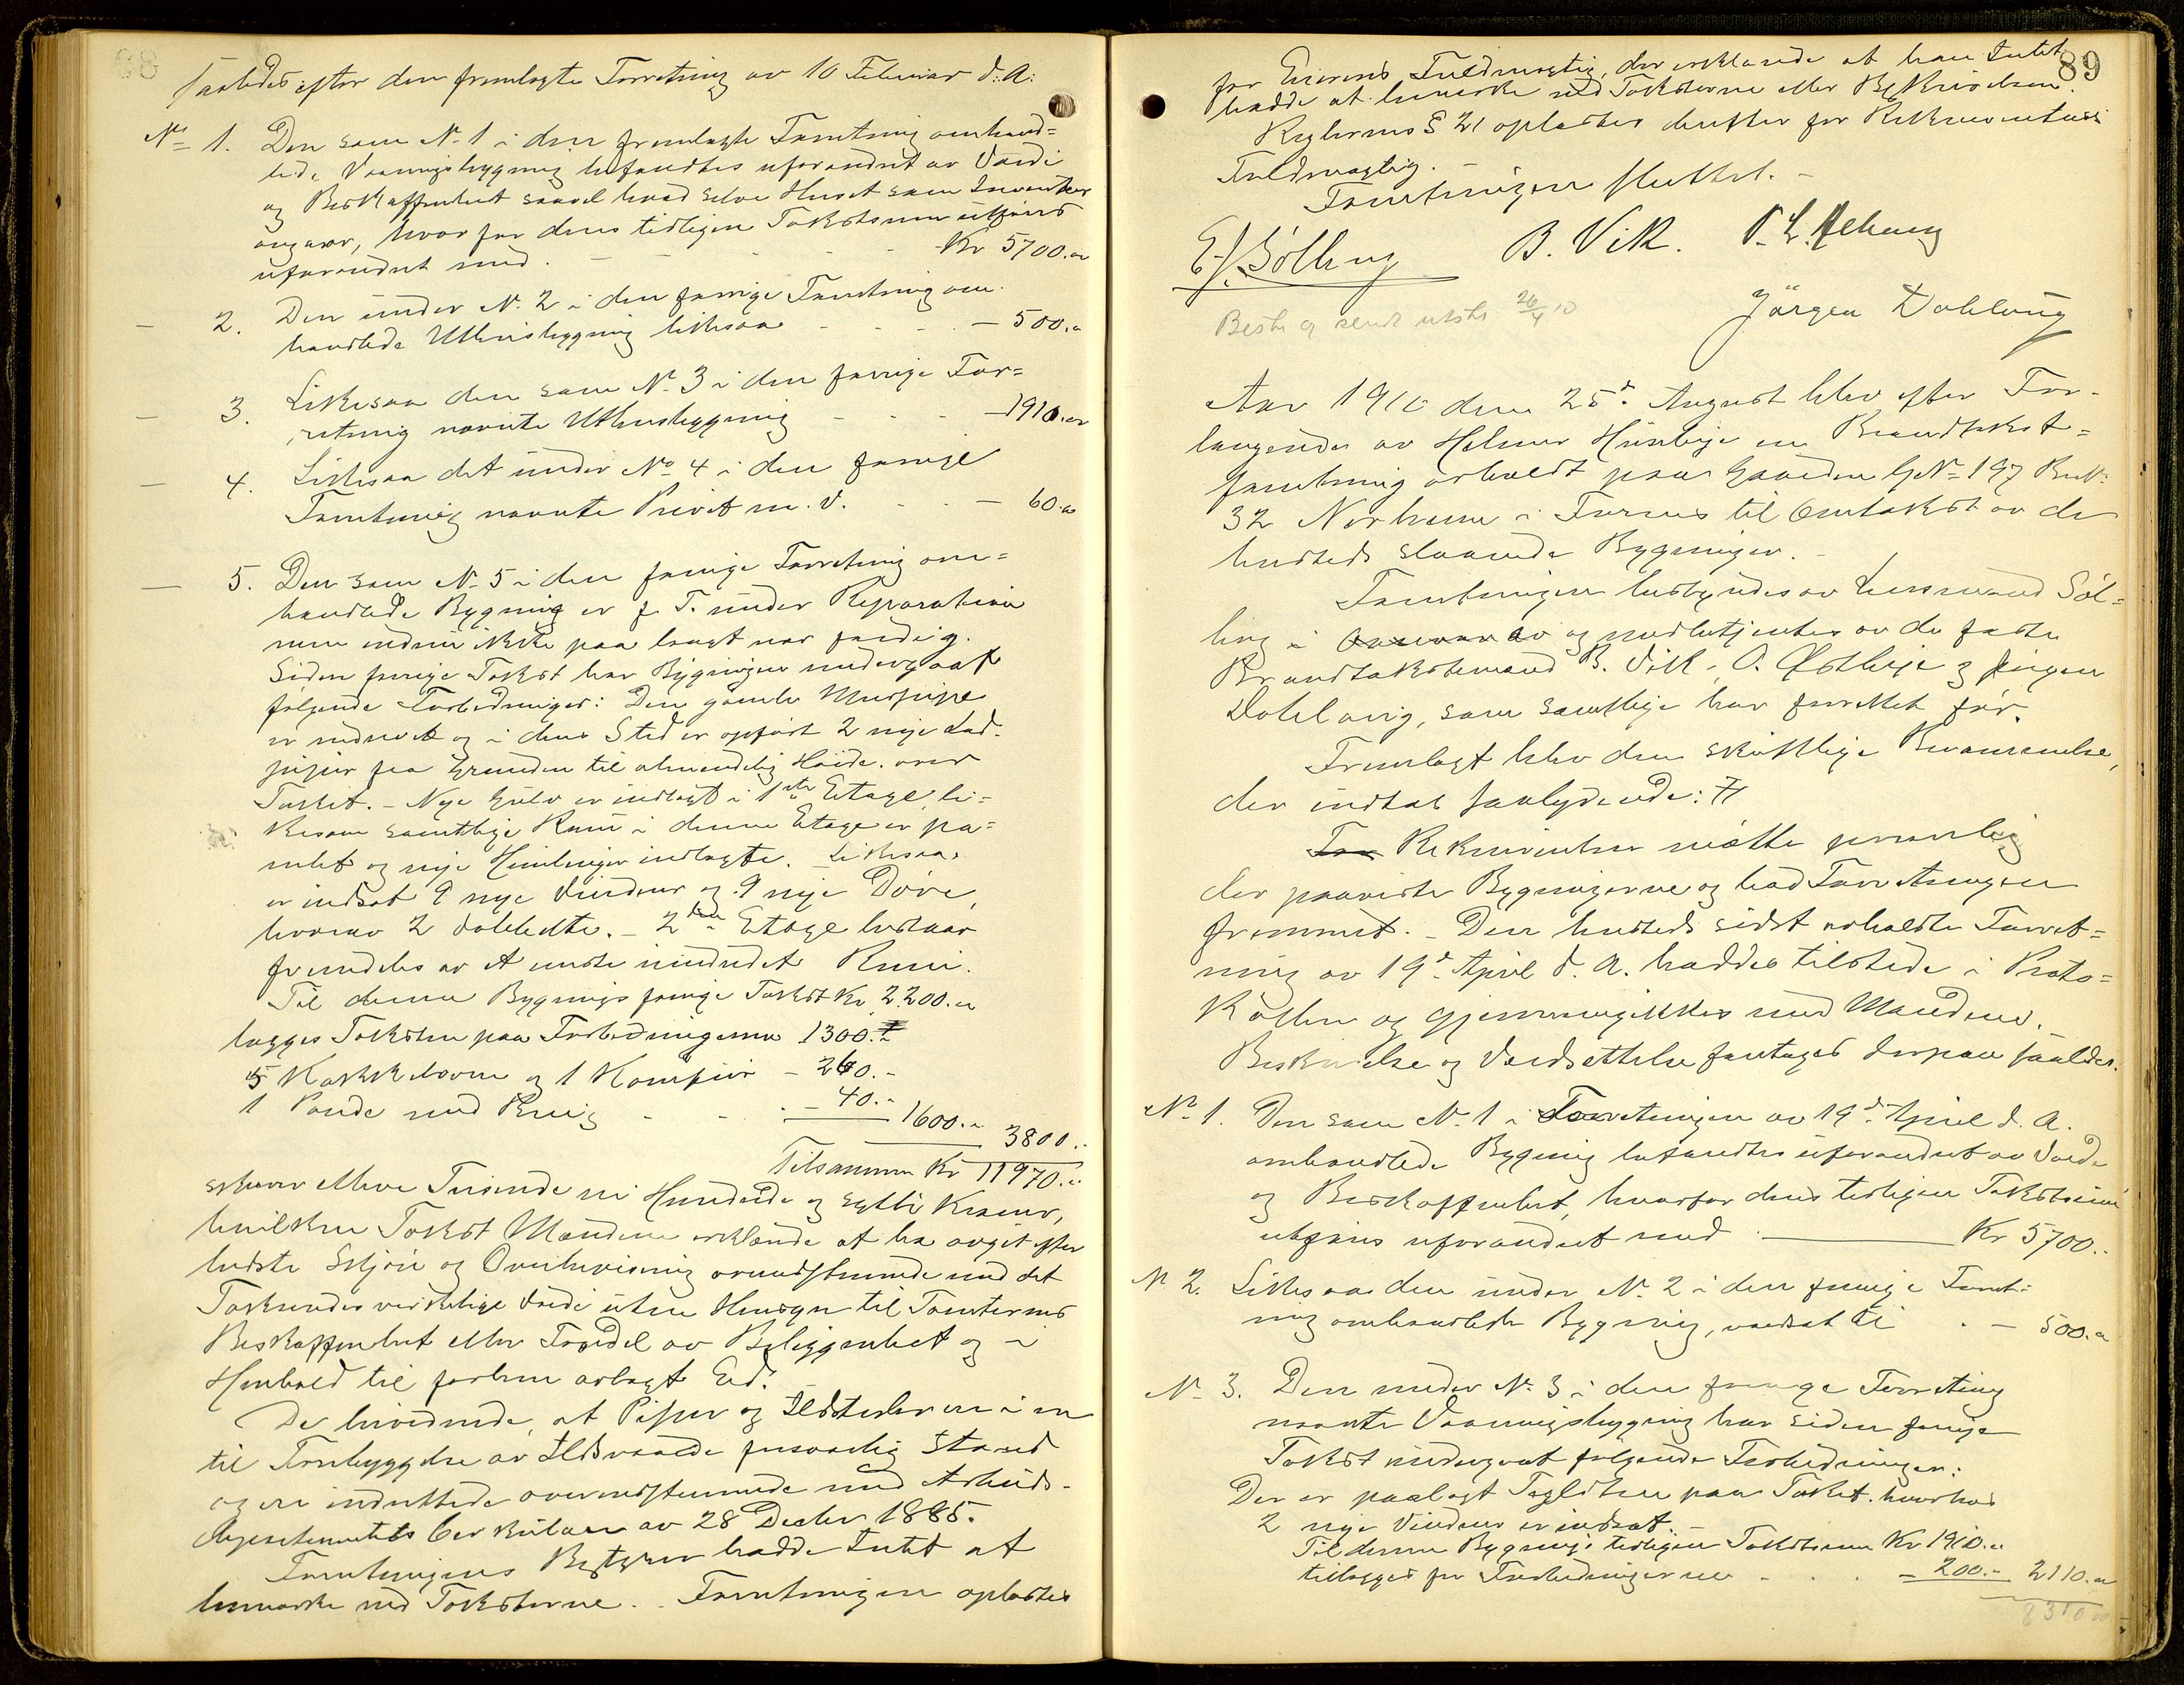 saaledes efter den fremlagte Forretning av 10 Februar d: A:
No 1. Den som No 1 i den fremlagte Forretning omhand=
lede Vaaningsbygning befandtes uforandret av Værdi
og Beskaffenhet saavel hvad selve Huset som Inventar
angaar, hvorfor dens tidligere Takstsum utføres
uforandret med - - - Kr 5700.00
— 2. Den under No 2 i den forrige Forretning om-
handlede Uthusbygning likesaa - - - — 500.00
— 3. Likesaa den som No 3 i den forrige For=
retning nævnte Uthusbygning - - - — 1910.00
— 4. Likesaa det under No 4 i den forrige
Forretning nævnte Privet m. v. - - — 60.00
— 5. Den som No 5 i den forrige Forretning om=
handlede Bygning er p. T. under Reparation
men endnu ikke paa langt nær færdig.
Siden forrige Takst har Bygningen undergaat
følgende Forbedringer: Den gamle Murpipe
er nedrevet og i dens Sted er opført 2 nye Lad-
piper fra Grunden til almindelig Høide over
Taket. - Nye Gulv er indlagt i 1ste Etage, li=
kesom samtlige Rum i denne Etage er pa=
nelet og nye Himlinger indlagte. Likesaa
er indsat 9 nye Vinduer og 9 nye Døre,
hvorav 2 dobbelte. - 2den Etage bestaar
fremdeles av et eneste uindredet Rum.
Til denne Bygnings forrige Takst Kr. 2200.00
lægges Taksten paa Forbedringerne 1300.-
5 Kakkelovne og 1 Komfuir - 260.-
1 Pande med Bruig - - - 40.-
1600.- 3800.-
Tilsammen Kr 11970.-
skriver elleve Tusinde ni Hundrede og sytti Kroner,
hvilken Takst Mændene erklærede at ha avgit efter
bedste Skjøn og Overbevisning overensstemmende med det
Takseredes virkelige Værdi uten Hensyn til Tomternes
Beskaffenhet eller Fordel av Beliggenhet og i
Henhold til forhen avlagt Ed.
De bevidnede, at Piper og Ildsteder er i en
til Forebyggelse av Ildsvaade forsvarlig Stand
og er indrettede overensstemmende med Arbeids-
departementets Cirkulære av 28 Decbr 1885.
Forretningens Bestyrer hadde Intet at
bemærke ved Taksterne. - Forretningen oplæstes
89
for Eierens Fuldmægtig, der erklærede at han Intet
hadde at bemerke ved Taksterne eller Beskrivelsen.
Reglernes § 21 oplæstes derefter for Rekvirentens
Fuldmægtig. -
Forretningen sluttet. -
E. J. Sølling B. Vik.
Jörgen Dahlaug
Besk. og sendt utskr. 26/4 10
Aar 1910 den 25de August blev efter For-
langende av Helmer Husebye en Brandtakst=
forretning avholdt paa Gaarden GNo 197 BrNo
32 Norheim i Furnes til Omtakst av de
hersteds staaende Bygninger. -
Forretningen bestyredes av Lensmand Søl=
ling og medbetjentes av de faste
Brandtakstmænd B. Vik, O. Østbye og Jørgen
Dahlaug, som samtlige har forrettet før.
Fremlagt blev den skriftlige Berammelse,
der indtas saalydende: #
Rekvirenten møtte personlig
der paaviste Bygningerne og bad Forretningen
fremmet. - Den hersteds sidst avholdte Forret=
ning av 19de April d. A. haddes tilstede i Proto=
kollen og gjennemgikkes med Mændene.
Beskrivelse og Værdsettelse foretages derpaa saaledes.
No 1. Den som No 1 i Forretningen av 19de April d. A.
omhandlede Bygning befandtes uforandret av Værdi
og Beskaffenhet, hvorfor dens tidligere Takstsum
utføres uforandret med Kr 5700.-
No 2. Likesaa den under No 2 i den forrige Forret-
ning omhandlede Bygning, værdsat til - — 500.00
No 3. Den under No 3 i den forrige Forretning
nævnte Vaaningsbygning har siden forrige
Takst undergaat følgende Forbedringer:
Der er paalagt Taglsten paa Taket, hvorhos
2 nye Vinduer er indsat. -
Til denne Bygnings tidligere Takstsum Kr 1910.00
tillægges for Forbedringerne - - - 200.- 2110.00
8310.00